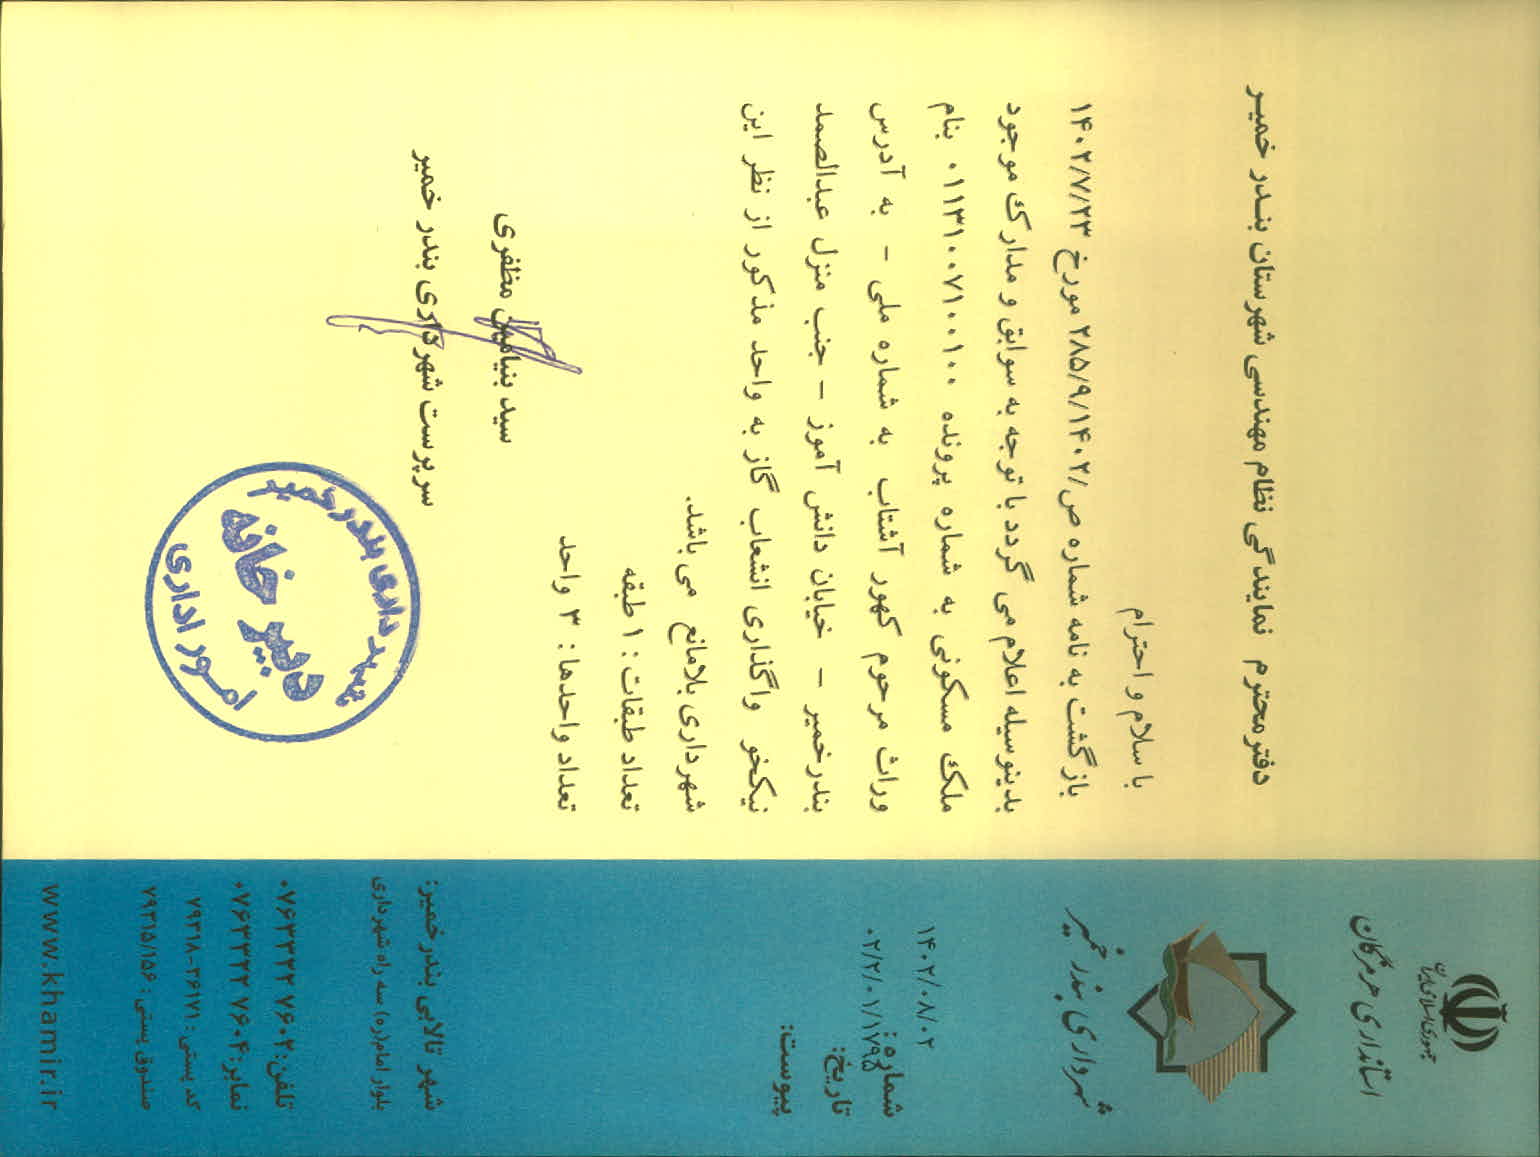 جمهوری اسلامی ایران
استانداری هرمزگان
شهرداری بندر خمیر
۱۴۰۲/۰۸/۰۲
شماره: ۰۲/۲/۰۱/۱۷۹۵
تاریخ:
پیوست:
دفتر محترم نمایندگی نظام مهندسی شهرستان بندر خمیر
با سلام و احترام
بازگشت به نامه شماره ص/۲۸۵/۹/۱۴۰۲ مورخ ۱۴۰۲/۷/۲۳
بدینوسیله اعلام می گردد با توجه به سوابق و مدارک موجود
ملک مسکونی به شماره پرونده ۰۱۱۳۱۰۰۷۱۰۰۱۰۰ بنام
وراث مرحوم کهور آشتاب به شماره ملی - به آدرس
بندرخمیر - خیابان دانش آموز - جنب منزل عبدالصمد
نیکخو واگذاری انشعاب گاز به واحد مذکور از نظر این
شهرداری بلامانع می باشد.
تعداد طبقات : ۱ طبقه
تعداد واحدها : ۳ واحد
سید بنیامین مظفری
سرپرست شهرداری بندر خمیر
شهرداری بندر خمیر
دبیر خانه
امور اداری
شهر تالابی بندر خمیر:
بلوار امام(ره) سه راه شهرداری
تلفن: ۰۷۶۳۳۲۲ ۷۶۰۲
نمابر: ۰۷۶۳۳۲۲ ۷۶۰۴
کد پستی: ۷۹۳۱۸-۳۶۱۷۱
صندوق پستی: ۷۹۳۱۵/۱۵۶
www.khamir.ir